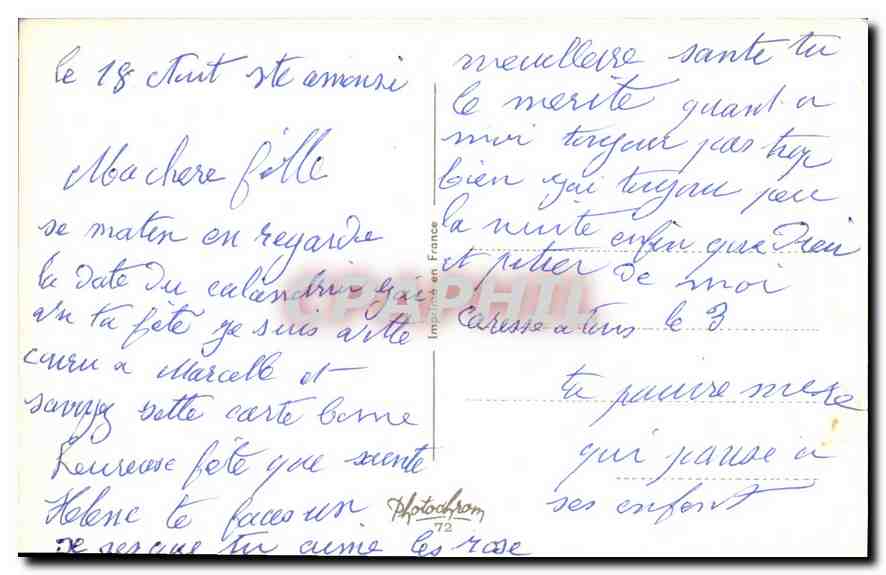 le 18 Aout
Ma chere fille
se maten en regarde
la date du calandrie gai
vu ta fête ge suis
couru a Marcelle et
sette carte bonne
heureuse fête que sainte
Helene te
tu aime les rose
santé tu
le merite quant a
moi toujour pas trop
bien gai toujou peu
la nuite enfin que Dieu
et pitier de moi
Caresse a tous le 3
ta pauvre mere
qui panse a
ses enfant
Imprimé en France
Photochrom
72
CPAPHIL